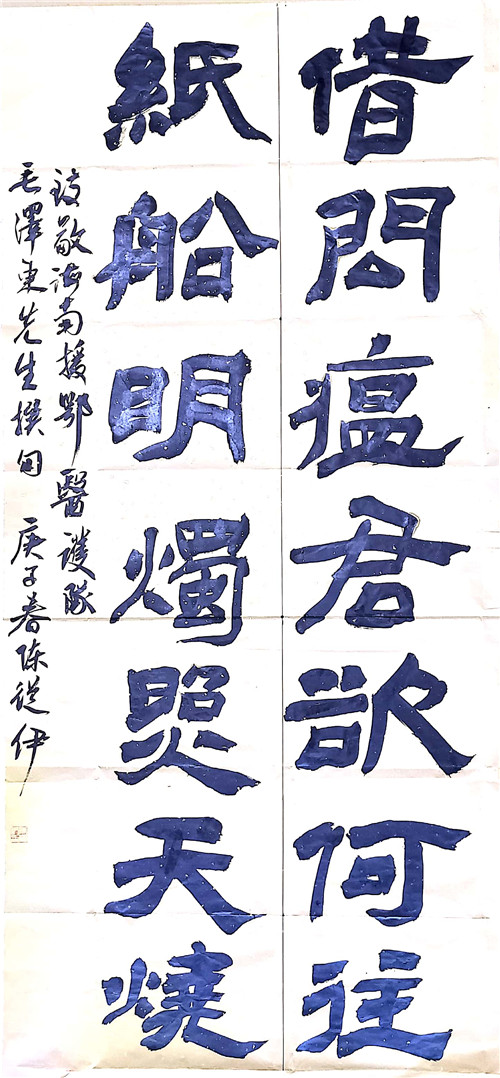 借問瘟君欲何往
紙船明燭照天燒
致敬海南援鄂醫護隊
毛澤東先生撰句 庚子春陈從伊